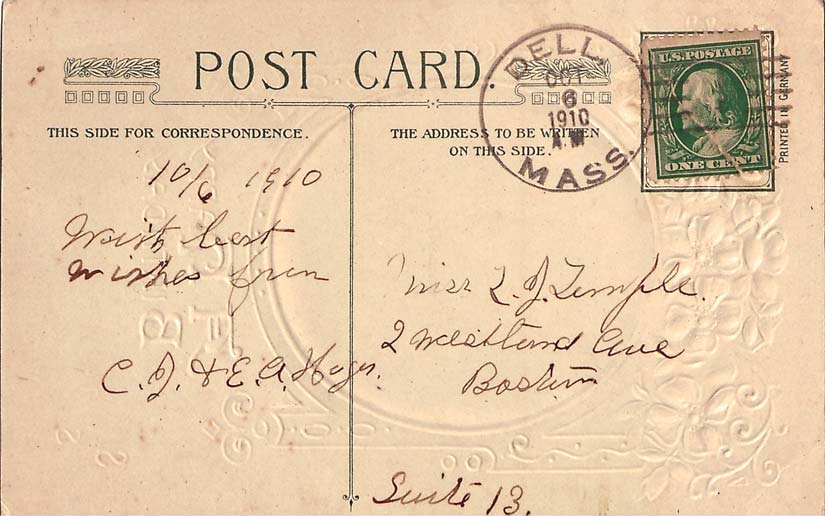 POST CARD.
THIS SIDE FOR CORRESPONDENCE.
THE ADDRESS TO BE WRITTEN
ON THIS SIDE.
DELL
OCT
6
1910
A.M
MASS.
U.S. POSTAGE
ONE CENT
PRINTED IN GERMANY
10/6 1910
With best
wishes from
C. J. & E. A.
Miss L. J. Temple.
2 Westland Ave
Boston
Suite 13.